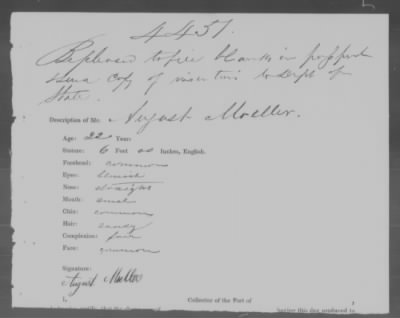 4451.
Be pleased to fill blanks in passport
send copy of insertions to Dept of
State.
Description of Mr. August Moeller.
Age: 22 Years
Stature: 6 Feet 00 Inches, English.
Forehead: common
Eyes:
Nose: straight
Mouth: small
Chin: common
Hair: sandy
Complexion: fair
Face: common
Signature:
August Moeller
I, Collector of the Port of